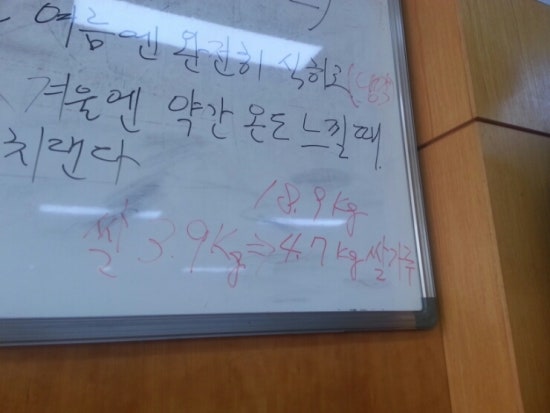 여름엔 완전히 식히고
겨울엔 약간 온도 느낄때
치랜다
18.9kg
쌀 3.9Kg ⇒ 4.7kg 쌀가루